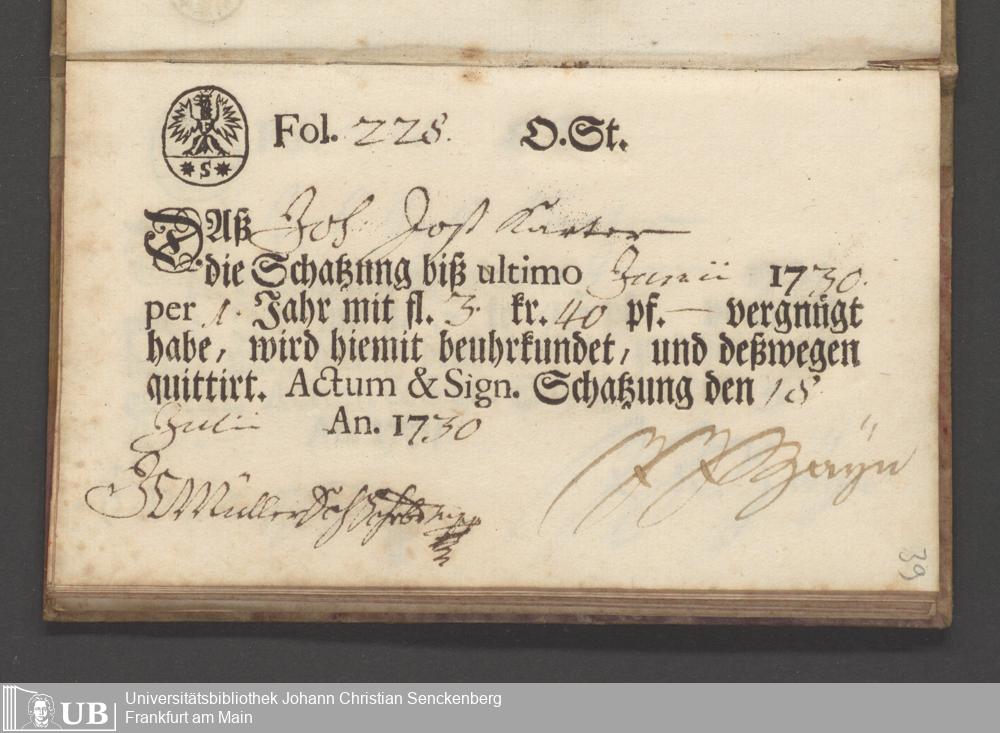 * S *
Fol. 228. O.St.
DAß Joh. Jost Karter
die Schatzung biß ultimo Junii 1730.
per 1. Jahr mit fl. 3. kr. 40 pf. — vergnügt
habe, wird hiemit beuhrkundet, und deßwegen
quittirt. Actum & Sign. Schatzung den 18
Julii An. 1730
Müller
Bäyn
39
UB
Universitätsbibliothek Johann Christian Senckenberg
Frankfurt am Main